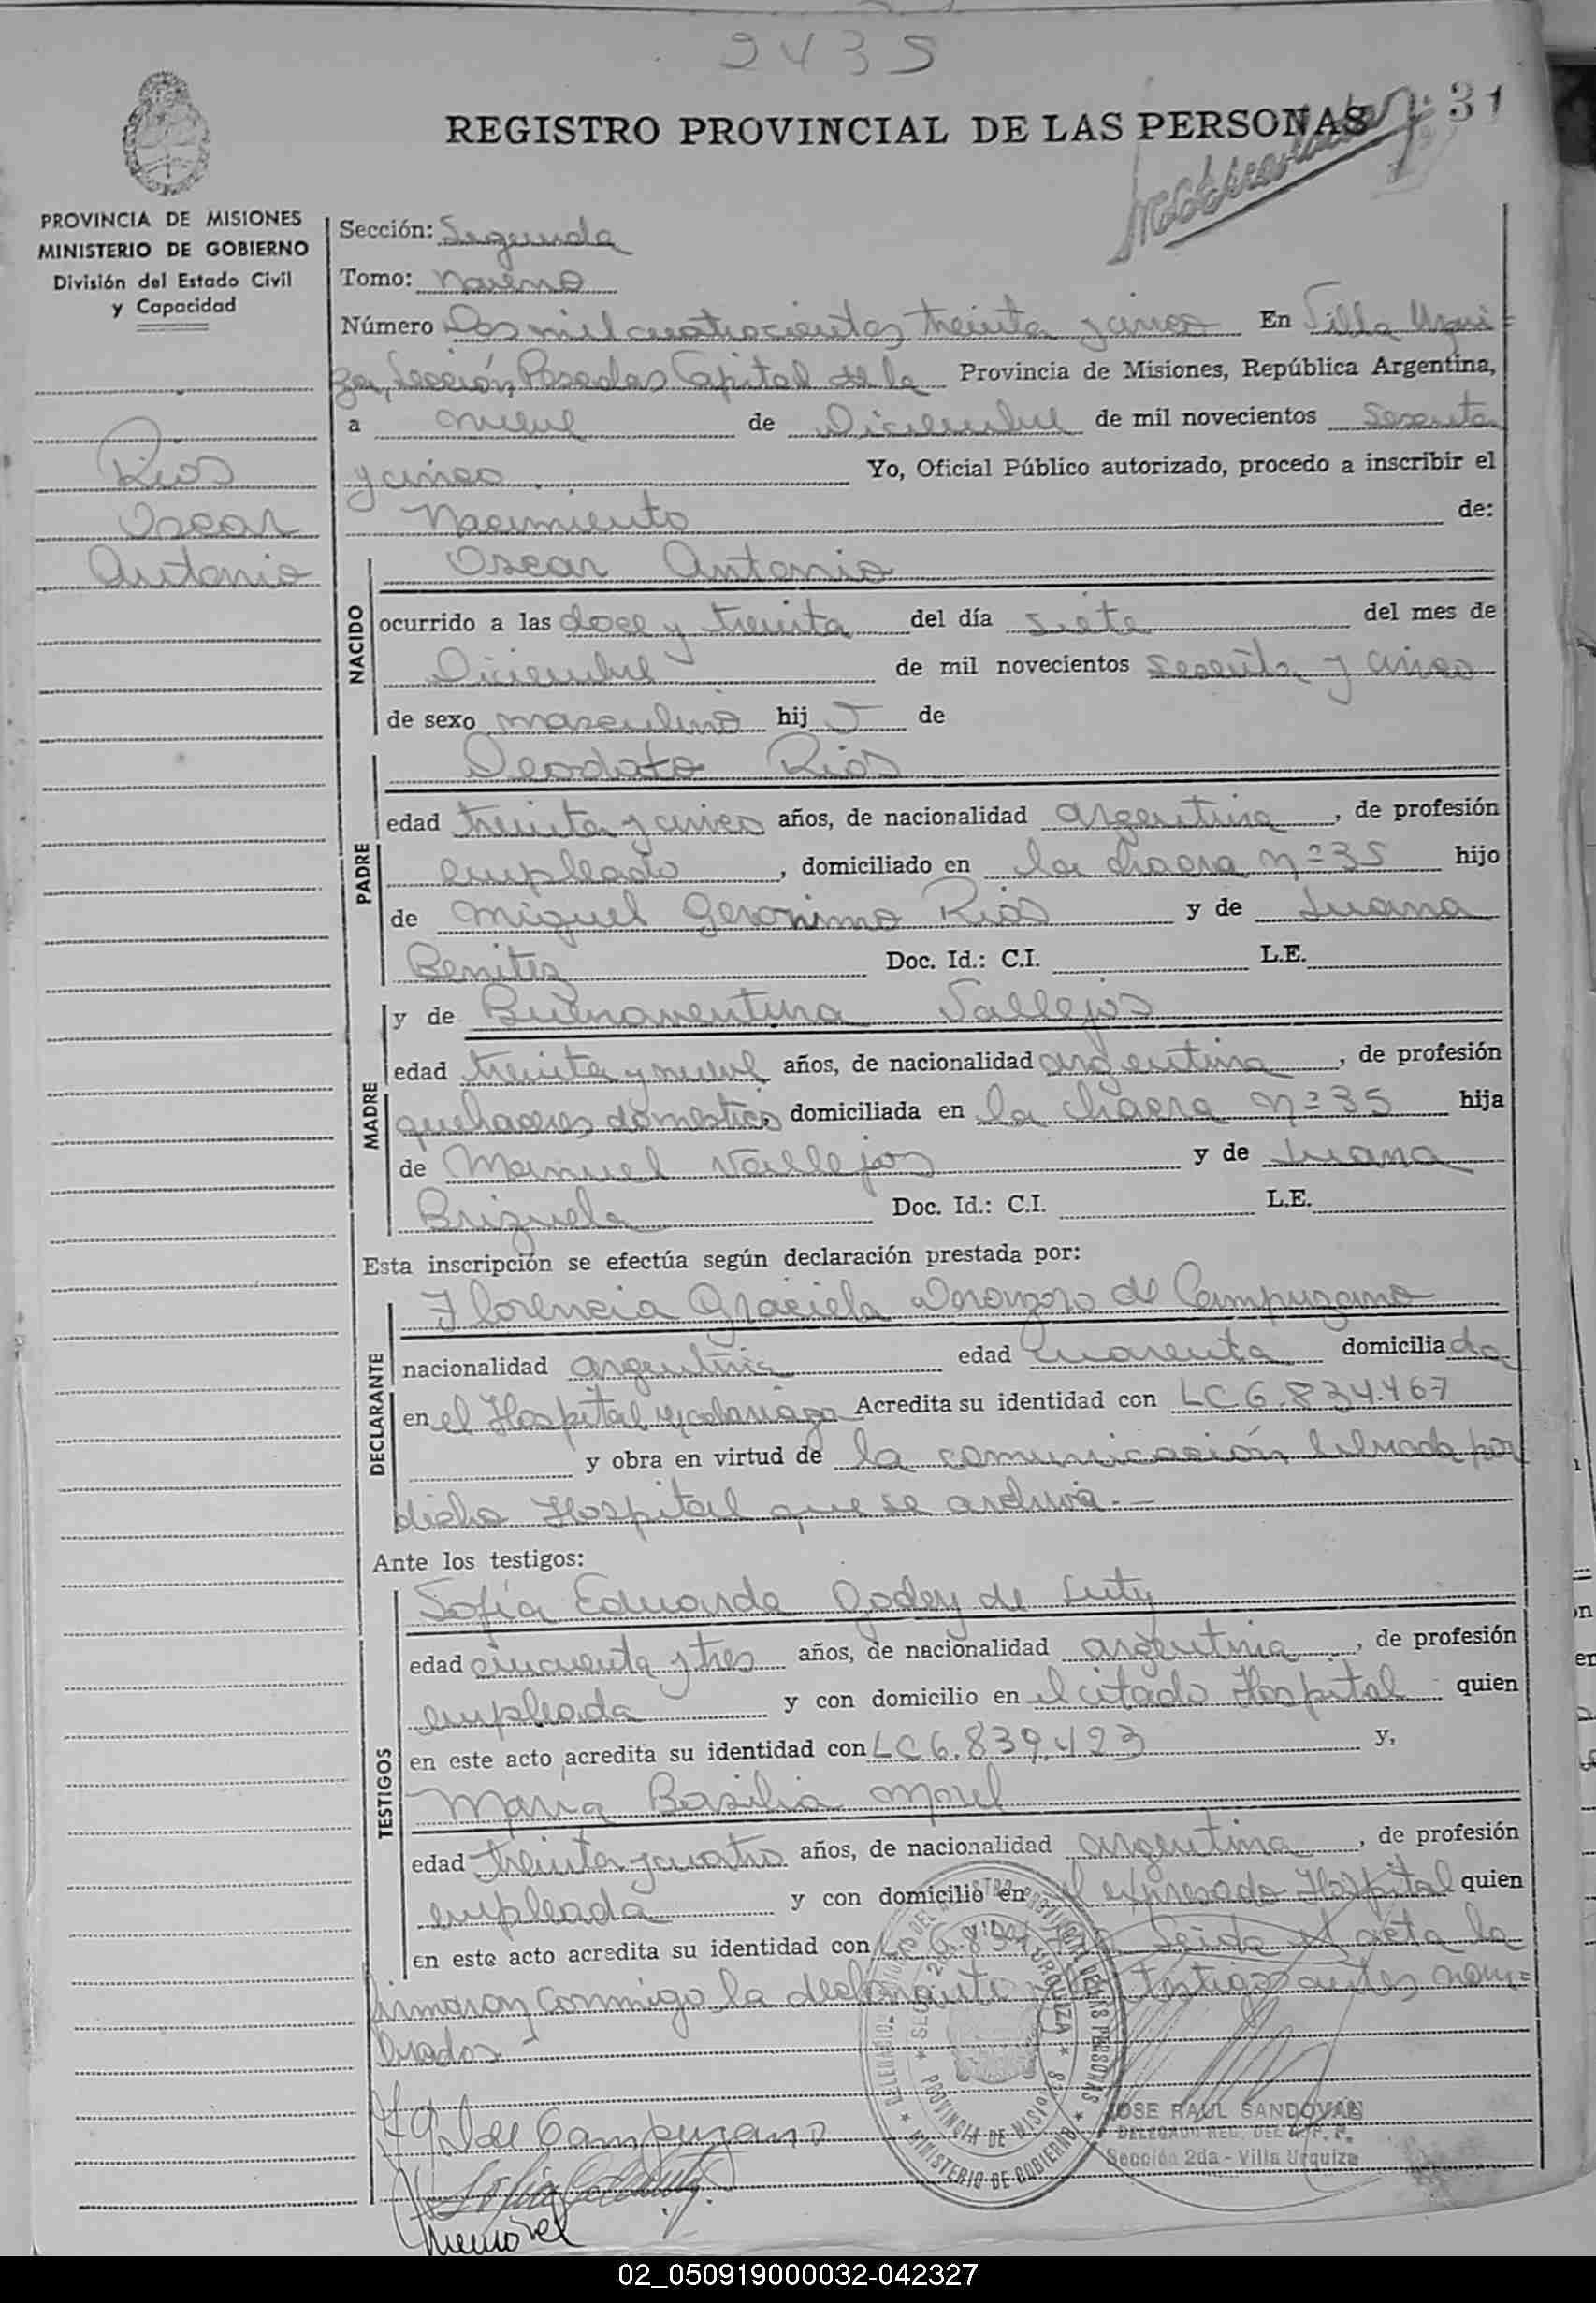 2435
31
REGISTRO PROVINCIAL DE LAS PERSONAS
PROVINCIA DE MISIONES
MINISTERIO DE GOBIERNO
División del Estado Civil
y Capacidad
Rios
Oscar
Antonio
Sección: Segunda
Tomo: noveno
Número Dos mil cuatrocientos treinta y cinco En Villa Urqui
za, Sección, Posadas Capital de la Provincia de Misiones, República Argentina,
a nueve de Diciembre de mil novecientos sesenta
y cinco Yo, Oficial Público autorizado, procedo a inscribir el
Nacimiento de:
NACIDO
Oscar Antonio
ocurrido a las doce y treinta del día siete del mes de
Diciembre de mil novecientos sesenta y cinco
de sexo masculino hij o de
PADRE
Deodato Rios
edad treinta y cinco años, de nacionalidad argentina, de profesión
empleado, domiciliado en la chacra nº 35 hijo
de Miguel Geronimo Rios y de Juana
Benitez Doc. Id.: C.I. L.E.
MADRE
y de Buenaventura Vallejos
edad treinta y nueve años, de nacionalidad argentina, de profesión
quehaceres domesticos domiciliada en la chacra nº 35 hija
de Manuel Vallejos y de Juana
Brizuela Doc. Id.: C.I. L.E.
Esta inscripción se efectúa según declaración prestada por:
DECLARANTE
Florencia Graciela de Campuzano
nacionalidad argentina edad cuarenta domiciliada
en el Hospital Acredita su identidad con LC 6.834.467
y obra en virtud de la comunicación librada por
dicho Hospital que se archiva.-
Ante los testigos:
TESTIGOS
Sofia Eduarda Godoy de Luty
edad cincuenta y tres años, de nacionalidad argentina, de profesión
empleada y con domicilio en el citado Hospital quien
en este acto acredita su identidad con LC 6.839.423 y,
Maria Basilia Morel
edad treinta y cuatro años, de nacionalidad argentina, de profesión
empleada y con domicilio en el expresado Hospital quien
en este acto acredita su identidad con Leida el acta la
firmaron conmigo la declarante testigos antes nom=
brados-
de Campuzano
MINISTERIO DE GOBIERNO
PROVINCIA DE MISIONES
JOSE RAUL SANDOVAL
DELEGADO REG. DEL
Sección 2da - Villa Urquiza
02_050919000032-042327